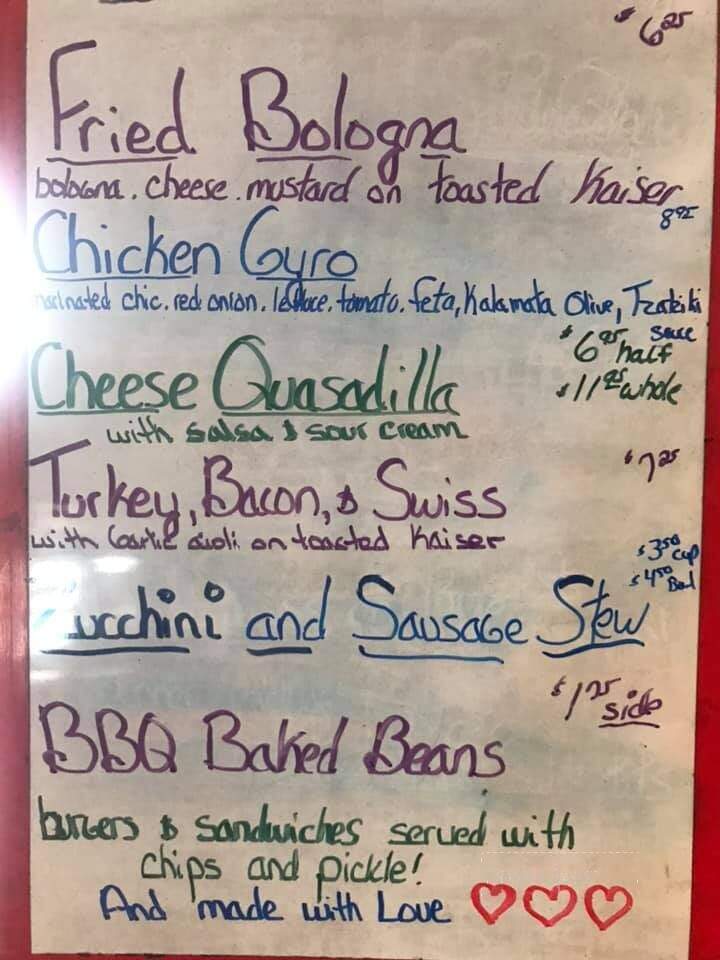 $6.25
Fried Bologna
bologna. cheese. mustard on toasted Kaiser
8.95
Chicken Gyro
marinated chic. red onion. lettuce. tomato. feta, Kalamata Olive, Tzatziki
sauce
$6.95 half
Cheese Quasadilla
$11.95 whole
with salsa & sour cream
$7.25
Turkey, Bacon, & Swiss
with Garlic aioli on toasted Kaiser
$3.50 cup
$4.50 Bowl
Zucchini and Sausage Stew
$1.25
side
BBQ Baked Beans
burgers & sandwiches served with
chips and pickle!
And made with Love